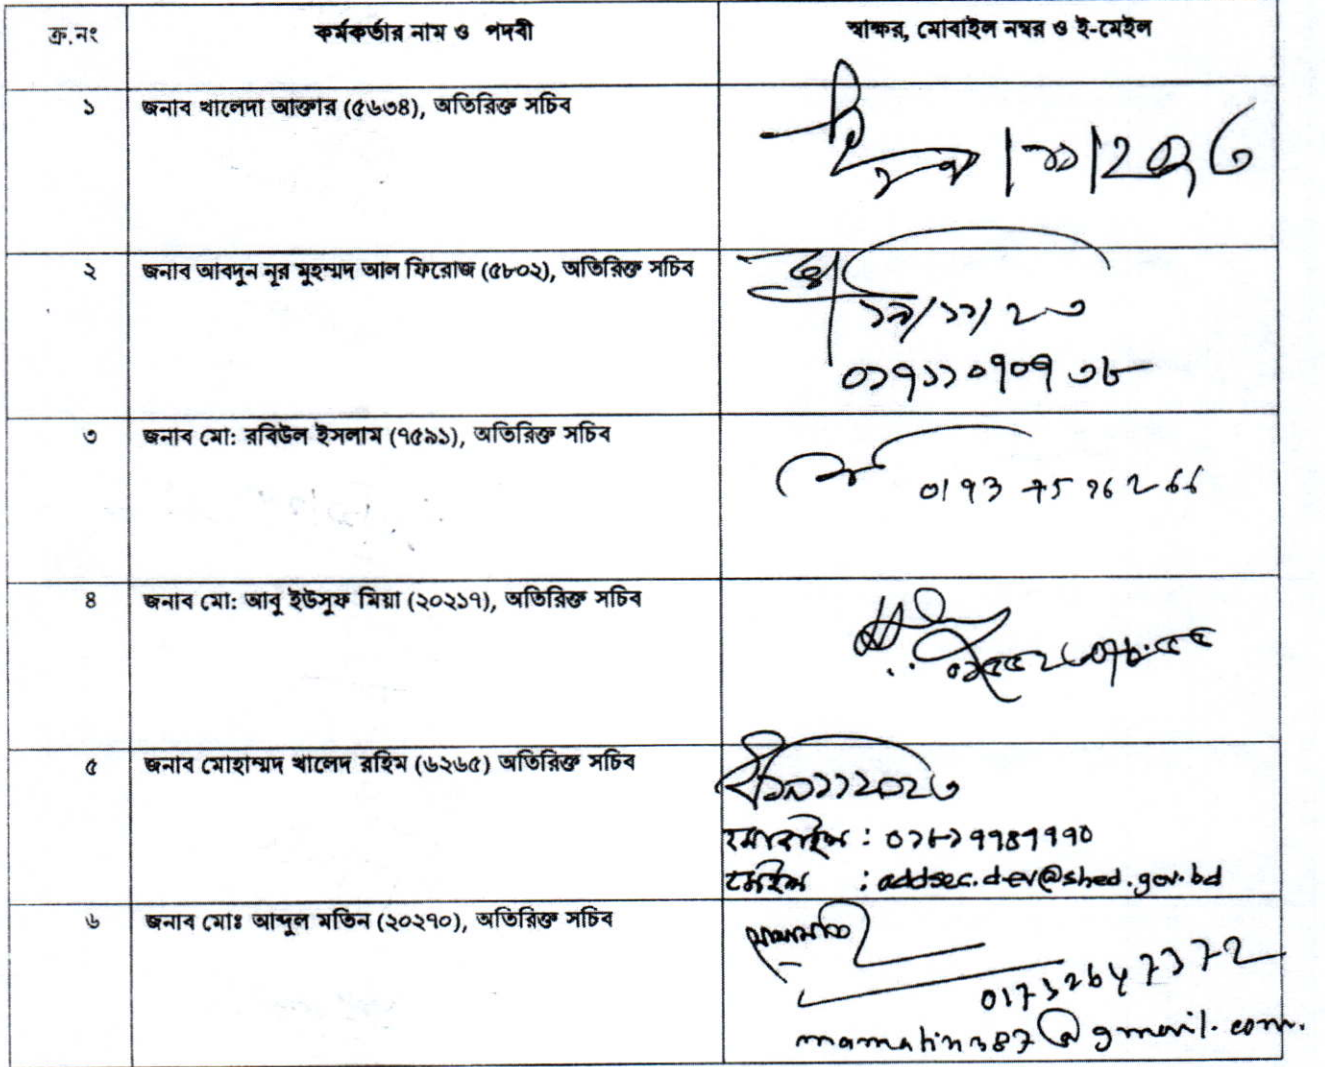 ক্র.নং কর্মকর্তার নাম ও পদবী স্বাক্ষর, মোবাইল নম্বর ও ই-মেইল
১ জনাব খালেদা আক্তার (৫৬৩৪), অতিরিক্ত সচিব
২ জনাব আবদুন নূর মুহম্মদ আল ফিরোজ (৫৮০২), অতিরিক্ত সচিব
১৯/১১/২৩
০১৭১১০৭০৭৩৮
৩ জনাব মো: রবিউল ইসলাম (৭৫৯১), অতিরিক্ত সচিব
৪ জনাব মো: আবু ইউসুফ মিয়া (২০২১৭), অতিরিক্ত সচিব
৫ জনাব মোহাম্মদ খালেদ রহিম (৬২৬৫) অতিরিক্ত সচিব
মোবাইল :
মেইল : addsec.dev@shed.gov.bd
৬ জনাব মোঃ আব্দুল মতিন (২০২৭০), অতিরিক্ত সচিব
01732647372
mamatin387@gmail.com.